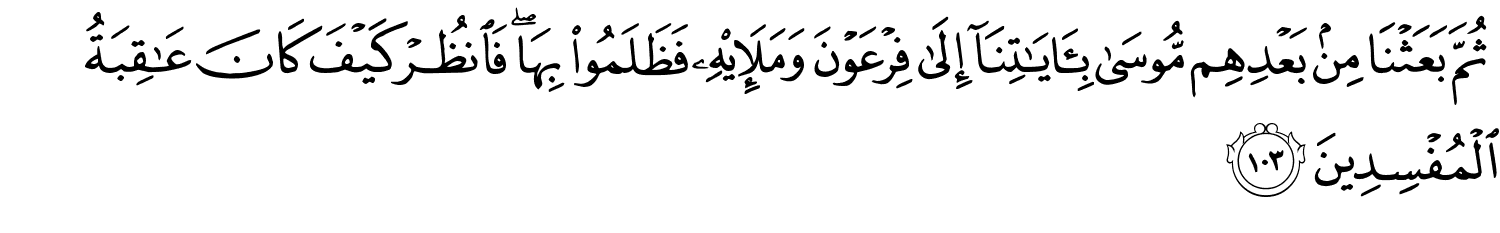 ثُمَّ بَعَثْنَا مِنۢ بَعْدِهِم مُّوسَىٰ بِـَٔايَـٰتِنَآ إِلَىٰ فِرْعَوْنَ وَمَلَإِي۟هِۦ فَظَلَمُوا۟ بِهَا ۖ فَٱنظُرْ كَيْفَ كَانَ عَـٰقِبَةُ
ٱلْمُفْسِدِينَ ١٠٣